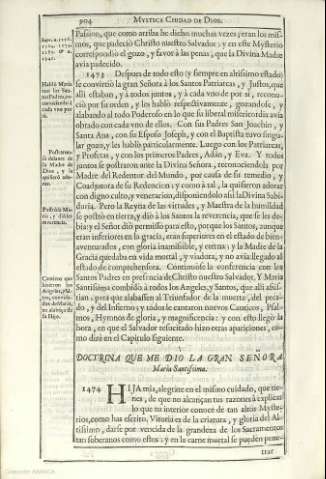 904 MYSTICA CIUDAD DE DIOS.
Passion, que como arriba he dicho muchas vezes, eran los mis-
mos, que padeció Christo nuestro Salvador: y en este Mysterio
correspondió el gozo, y favor à las penas, que la Divina Madre
avia padecido.
1473 Despues de todo esto (y siempre en altissimo estado)
se convirtió la gran Señora à los Santos Patriarcas, y Justos, que
allí estaban, y à todos juntos, y à cada vno de por sí, recono-
ció por su orden, y les habló respectivamente, gozandose, y
alabando al todo Poderoso en lo que su liberal misericordia avia
obrado con cada vno de ellos. Con sus Padres San Joachin, y
Santa Ana, con su Esposo Joseph, y con el Baptista tuvo singu-
lar gozo, y les habló particularmente. Luego con los Patriarcas,
y Profetas, y con los primeros Padres, Adàn, y Eva. Y todos
juntos se postraron ante la Divina Señora, reconociendola por
Madre del Redentor del Mundo, por causa de su remedio, y
Coadjutora de su Redencion: y como à tal, la quisieron adorar
con digno culto, y veneracion, disponiendolo assi la Divina Sabi-
duria. Pero la Reyna de las virtudes, y Maestra de la humildad
se postró en tierra, y dió à los Santos la reverencia, que se les de-
bia: y el Señor dió permisso para esto, porque los Santos, aunque
eran inferiores en la gracia, eran superiores en el estado de bien-
aventurados, con gloria inamissible, y eterna: y la Madre de la
Gracia quedaba en vida mortal, y viadora, y no avia llegado al
estado de comprehensora. Continuóse la conferencia con los
Santos Padres en presencia de Christo nuestro Salvador. Y Maria
Santissima combidó à todos los Angeles, y Santos, que alli assis-
tian, para que alabassen al Triunfador de la muerte, del peca-
do, y del Infierno: y todos le cantaron nuevos Canticos, Psal-
mos, Hymnos de gloria, y magnificencia: y con esto llegó la
hora, en que el Salvador resucitado hizo otras apariciones, co-
mo diré en el Capitulo siguiente.
DOCTRINA QUE ME DIO LA GRAN SEÑORA
Maria Santissima.
1474 HIJA mia, alegrate en el mismo cuidado, que tie-
nes, de que no alcançan tus razones à explicar
lo que tu interior conoce de tan altos Myste-
rios, como has escrito. Vitoria es de la criatura, y gloria del Al-
tissimo, darse por vencida de la grandeza de los Sacramentos
tan soberanos como estos: y en la carne mortal se pueden pene-
trar